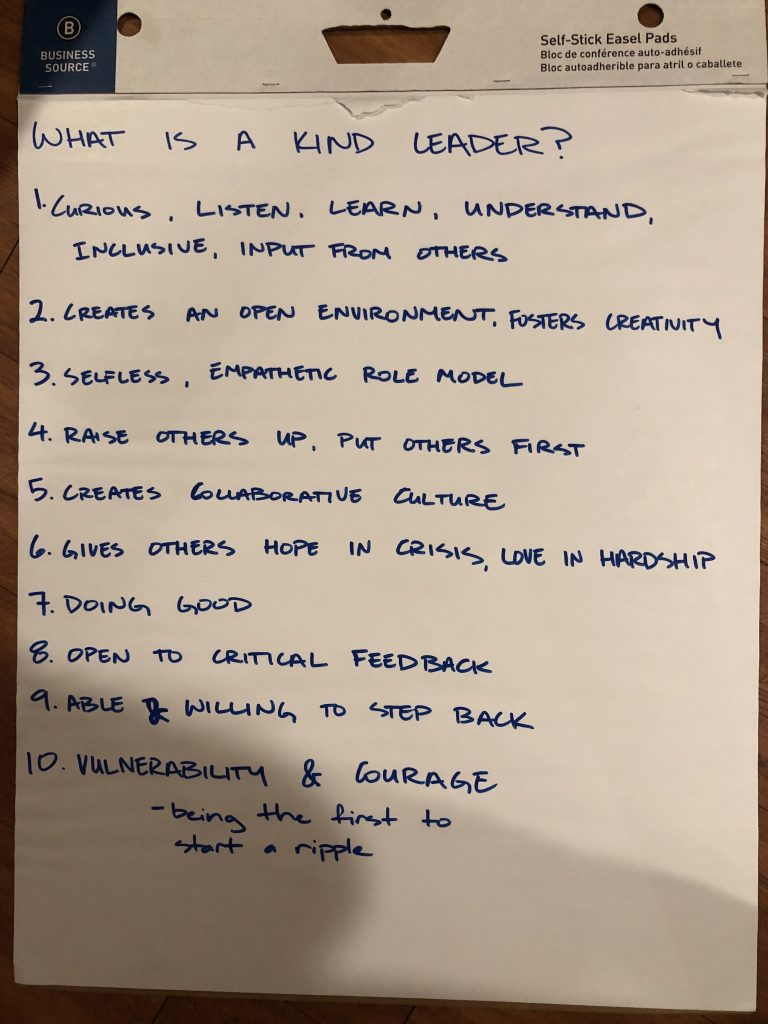 B
BUSINESS
SOURCE®
Self-Stick Easel Pads
Bloc de conférence auto-adhésif
Bloc autoadherible para atril o caballete
WHAT IS A KIND LEADER?
1. CURIOUS, LISTEN, LEARN, UNDERSTAND,
INCLUSIVE, INPUT FROM OTHERS
2. CREATES AN OPEN ENVIRONMENT, FOSTERS CREATIVITY
3. SELFLESS, EMPATHETIC ROLE MODEL
4. RAISE OTHERS UP, PUT OTHERS FIRST
5. CREATES COLLABORATIVE CULTURE
6. GIVES OTHERS HOPE IN CRISIS, LOVE IN HARDSHIP
7. DOING GOOD
8. OPEN TO CRITICAL FEEDBACK
9. ABLE & WILLING TO STEP BACK
10. VULNERABILITY & COURAGE
- being the first to
start a ripple